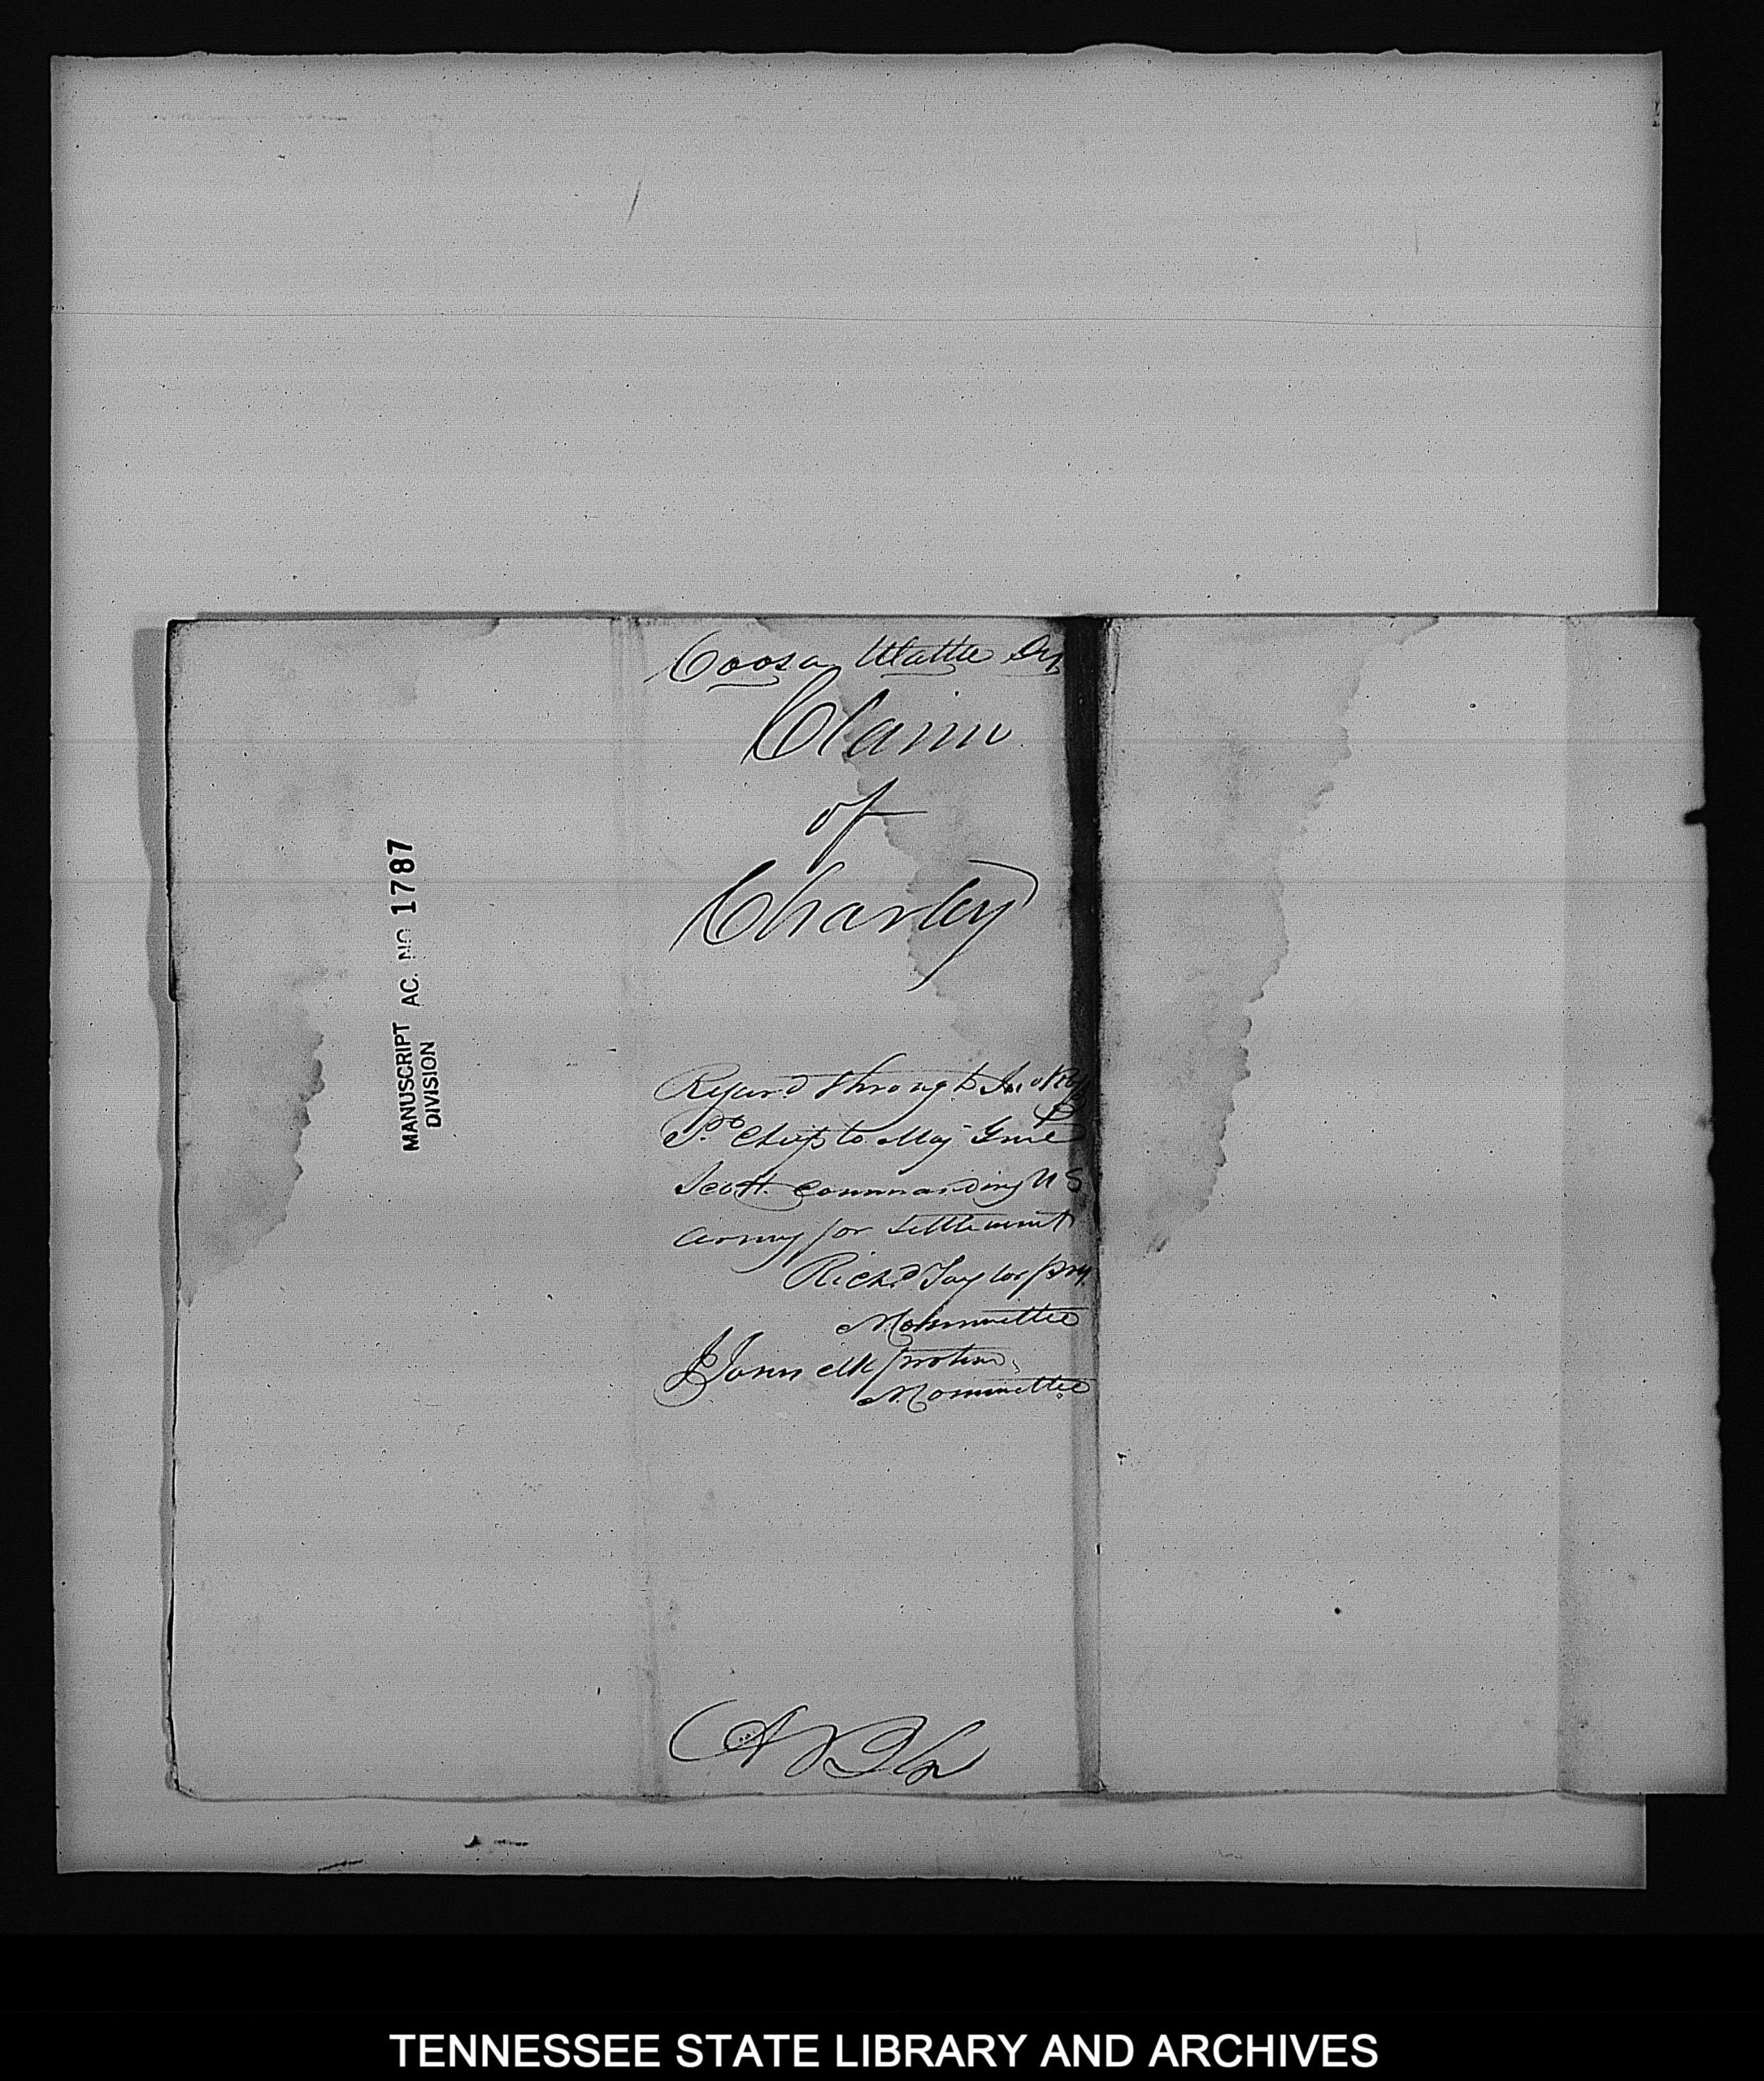 Coosa Wattee Dis
Claim
of
Charley
Referd through Jno Ross
Pr. Chief to Maj Genl
Scott commanding U S
Army for settlement
Richd Taylor
N. Committee
clk protem
N. Committee
MANUSCRIPT AC. NO 1787
DIVISION
TENNESSEE STATE LIBRARY AND ARCHIVES